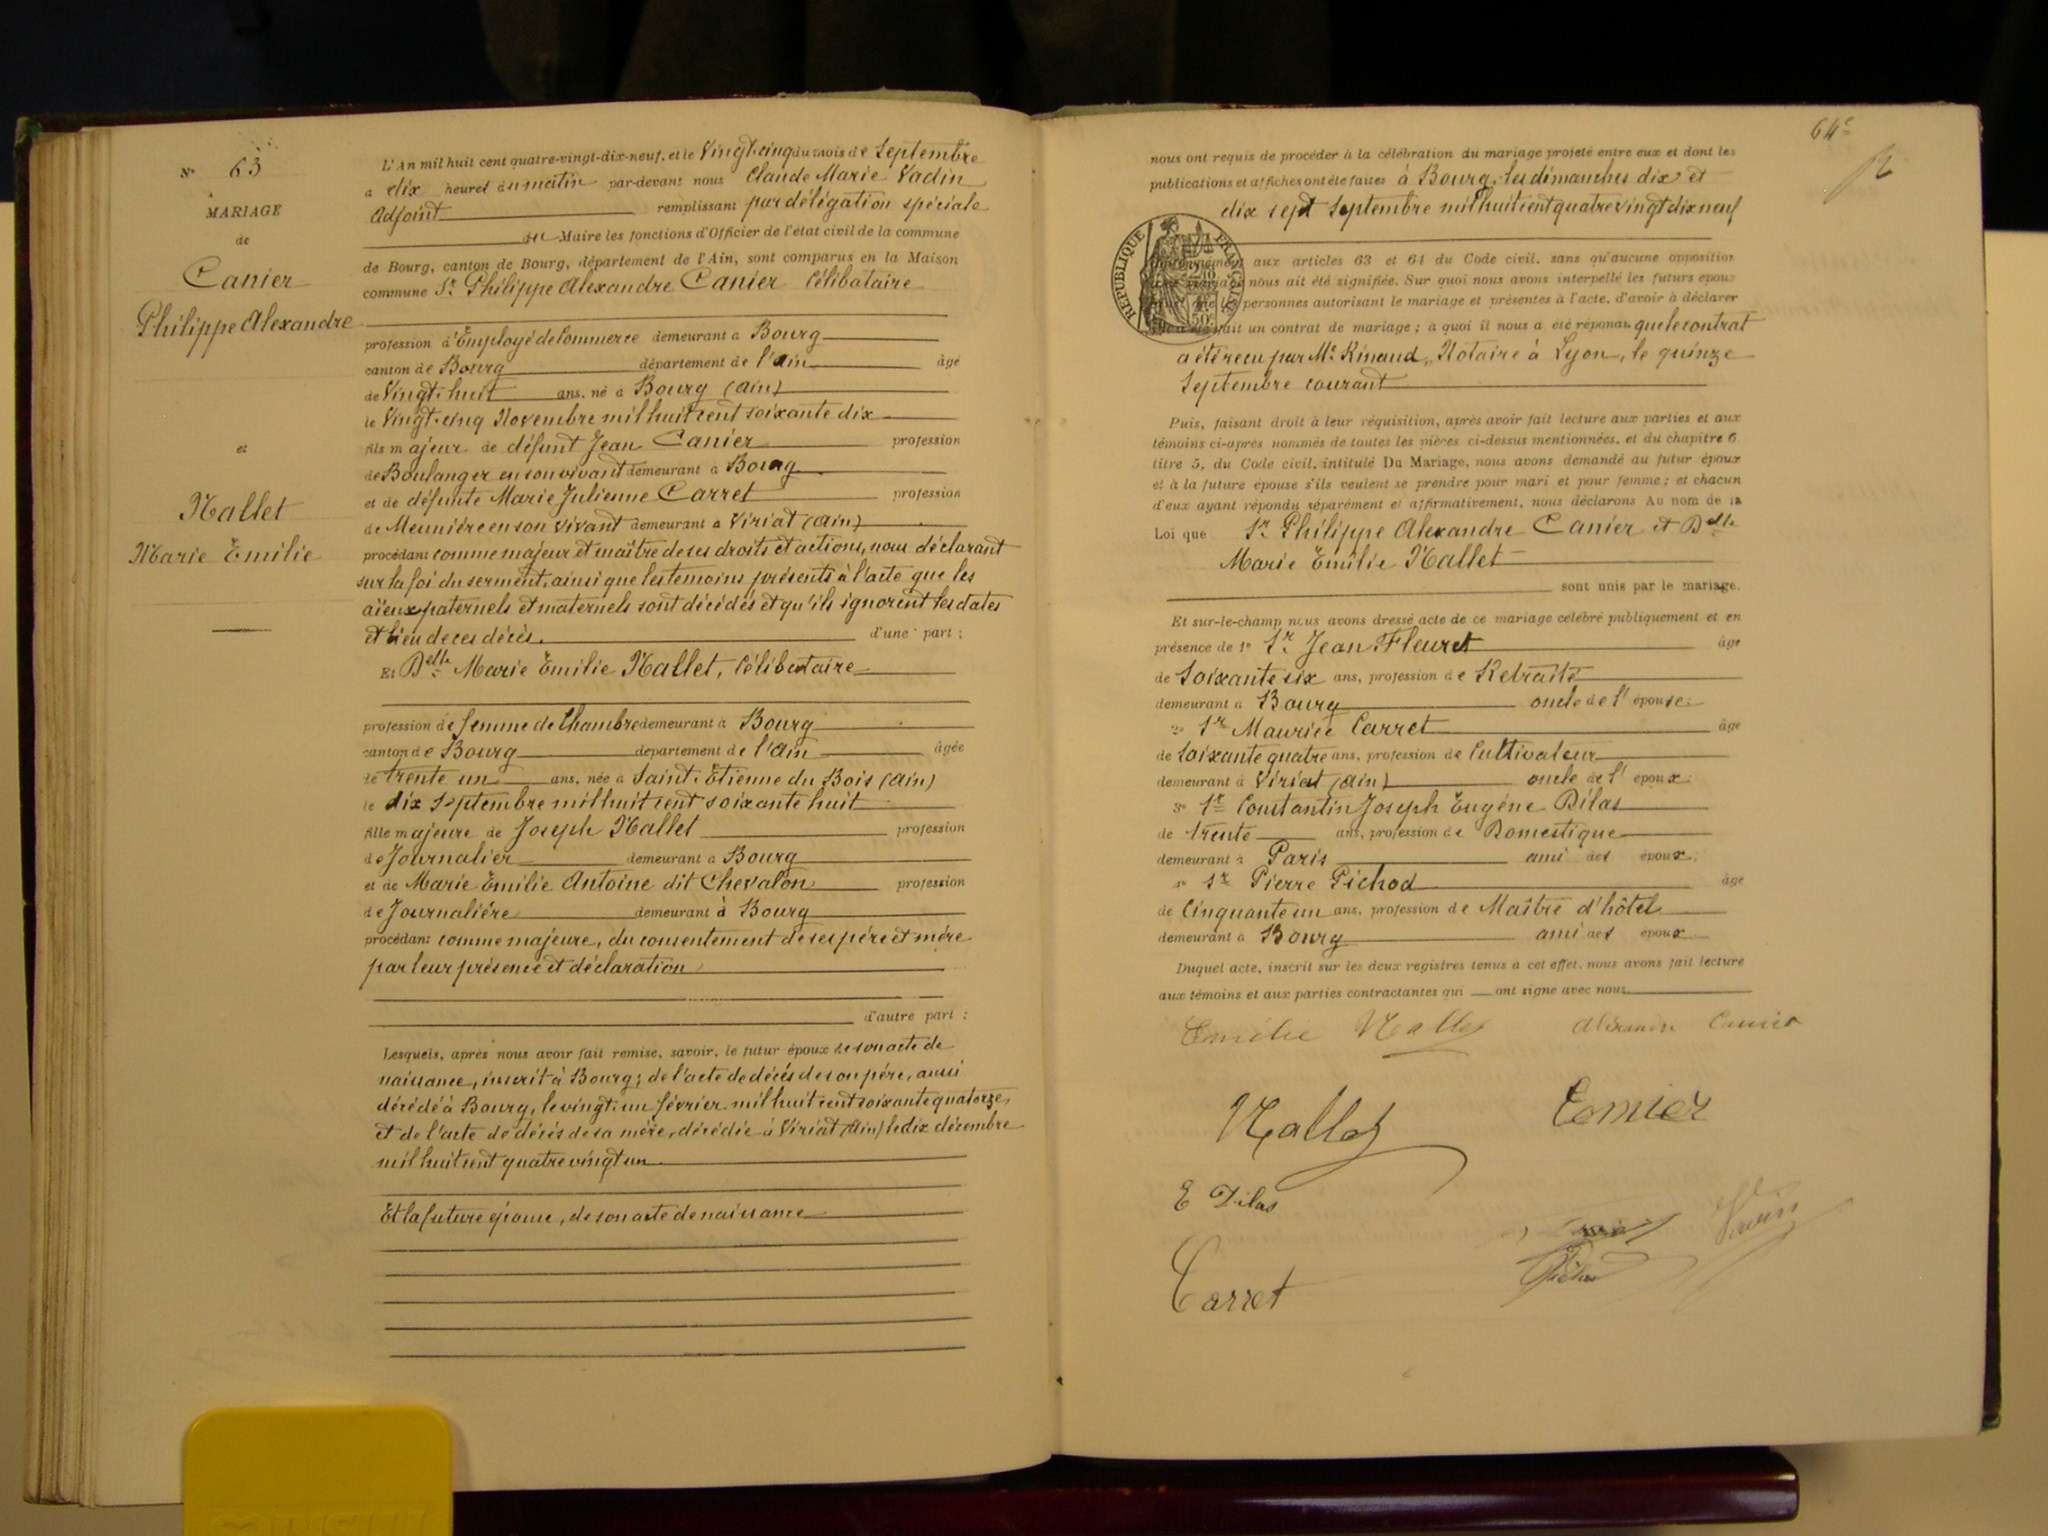 N° 63
MARIAGE
de
Canier
Philippe Alexandre
et
Nallet
Marie Emilie
L'An mil huit cent quatre-vingt-dix-neuf, et le Vingt-cinq du mois de Septembre
a dix heures du matin par-devant nous Claude Marie Vadin
Adjoint remplissant par délégation spéciale
du Maire les fonctions d'Officier de l'état civil de la commune
de Bourg, canton de Bourg, département de l'Ain, sont comparus en la Maison
commune Sr Philippe Alexandre Canier Célibataire
profession d'Employé de Commerce demeurant à Bourg
canton de Bourg département de l'Ain âgé
de Vingt-huit ans, né à Bourg (Ain)
le Vingt-cinq Novembre mil huit cent soixante dix
fils majeur de défunt Jean Canier profession
de Boulanger en son vivant demeurant à Bourg
et de défunte Marie Julienne Carret profession
de Meunière en son vivant demeurant à Viriat (Ain)
procédant comme majeur et maître de ses droits et actions, nous déclarant
sur la foi du serment, ainsi que les témoins présents à l'acte que les
aïeux paternels et maternels sont décédés et qu'ils ignorent les dates
et lieu de ces décès. d'une part ;
Et Delle Marie Emilie Nallet, Célibataire
profession de femme de Chambre demeurant à Bourg
canton de Bourg département de l'Ain âgée
de trente un ans, née à Saint-Etienne du Bois (Ain)
le dix Septembre mil huit cent soixante huit
fille majeure de Joseph Nallet profession
de Journalier demeurant à Bourg
et de Marie Emilie Antoine dit Chevalon profession
de Journalière demeurant à Bourg
procédant comme majeure, du consentement de ses père et mère
par leur présence et déclaration
d'autre part :
Lesquels, après nous avoir fait remise, savoir, le futur époux de son acte de
naissance, inscrit à Bourg ; de l'acte de décès de son père, aussi
décédé à Bourg, le vingt-un février mil huit cent soixante quatorze,
et de l'acte de décès de sa mère, décédée à Viriat (Ain) le dix décembre
mil huit cent quatre vingt un
Et la future épouse, de son acte de naissance
64e
nous ont requis de procéder à la célébration du mariage projeté entre eux et dont les
publications et affiches ont été faites à Bourg, les dimanches dix et
dix sept Septembre mil huit cent quatre vingt dix neuf
RÉPUBLIQUE FRANÇAISE
aux articles 63 et 64 du Code civil, sans qu'aucune opposition
nous ait été signifiée. Sur quoi nous avons interpellé les futurs époux
personnes autorisant le mariage et présentes à l'acte, d'avoir à déclarer
fait un contrat de mariage ; à quoi il nous a été répondu que le contrat
a été reçu par Me Rinaud, Notaire à Lyon, le quinze
Septembre courant
Puis, faisant droit à leur réquisition, après avoir fait lecture aux parties et aux
témoins ci-après nommés de toutes les pièces ci-dessus mentionnées, et du chapitre 6
titre 5, du Code civil, intitulé Du Mariage, nous avons demandé au futur époux
et à la future épouse s'ils veulent se prendre pour mari et pour femme ; et chacun
d'eux ayant répondu séparément et affirmativement, nous déclarons Au nom de la
Loi que Sr Philippe Alexandre Canier et Delle
Marie Emilie Nallet
sont unis par le mariage.
Et sur-le-champ nous avons dressé acte de ce mariage célébré publiquement et en
présence de 1° Sr Jean Fleuret âgé
de Soixante six ans, profession de Retraité
demeurant à Bourg oncle de l'épouse;
2° Sr Maurice Carret âgé
de Soixante quatre ans, profession de Cultivateur
demeurant à Viriat (Ain) oncle de l'époux;
3° Sr Constantin Joseph Eugène Dilas
de trente ans, profession de Domestique
demeurant à Paris ami des époux;
Sr Pierre Pichod âgé
de Cinquante un ans, profession de Maître d'hôtel
demeurant à Bourg ami des époux
Duquel acte, inscrit sur les deux registres tenus à cet effet, nous avons fait lecture
aux témoins et aux parties contractantes qui ont signé avec nous
Emilie Nallet Alexandre Canier
Nallet Canier
E Dilas
Vadin
Carret